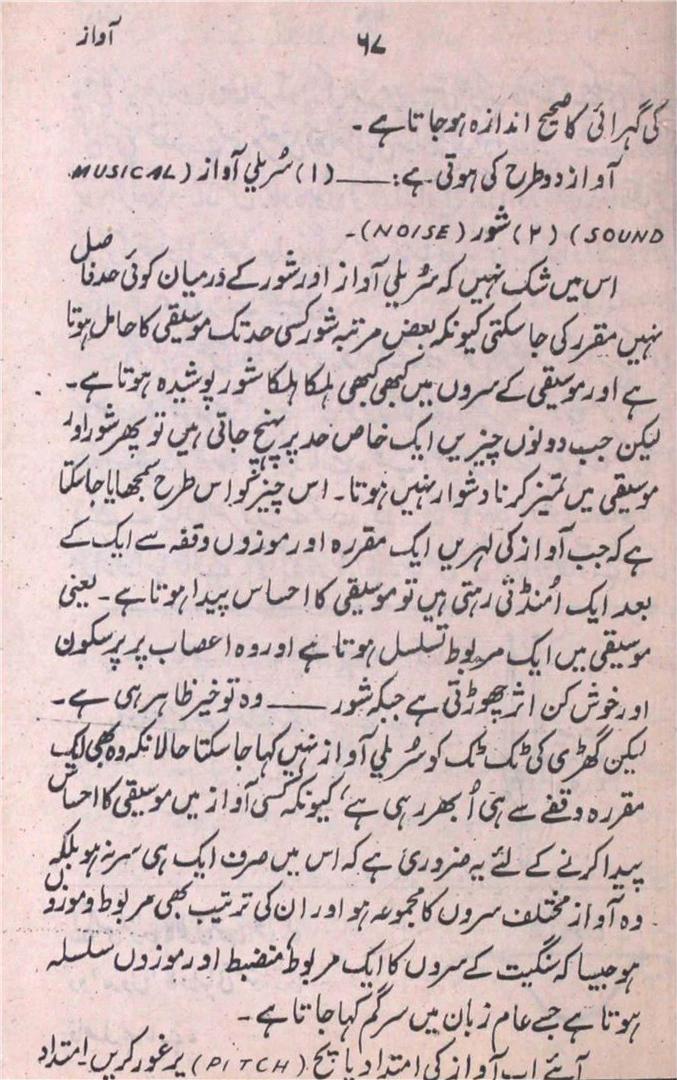 آواز
۶۷
کی گہرائی کا صحیح اندازہ ہو جاتا ہے۔
آواز دو طرح کی ہوتی ہے:—— (۱) سُریلی آواز (MUSICAL
SOUND) (۲) شور (NOISE)۔
اس میں شک نہیں کہ سُریلی آواز اور شور کے درمیان کوئی حد فاصل
نہیں مقرر کی جا سکتی کیونکہ بعض مرتبہ شور کسی حد تک موسیقی کا حامل ہوتا
ہے اور موسیقی کے سروں میں کبھی کبھی ہلکا ہلکا شور پوشیدہ ہوتا ہے۔
لیکن جب دونوں چیزیں ایک خاص حد پر پہنچ جاتی ہیں تو پھر شور اور
موسیقی میں تمیز کرنا دشوار نہیں ہوتا۔ اس چیز کو اس طرح سمجھایا جا سکتا
ہے کہ جب آواز کی لہریں ایک مقررہ اور موزوں وقفہ سے ایک کے
بعد ایک اُمنڈتی رہتی ہیں تو موسیقی کا احساس پیدا ہوتا ہے۔ یعنی
موسیقی میں ایک مربوط تسلسل ہوتا ہے اور وہ اعصاب پر پرسکون
اور خوش کن اثر چھوڑتی ہے جبکہ شور —— وہ تو خیر ظاہر ہی ہے۔
لیکن گھڑی کی ٹک ٹک کو سُریلی آواز نہیں کہا جا سکتا حالانکہ وہ بھی ایک
مقررہ وقفے سے ہی اُبھر رہی ہے، کیونکہ کسی آواز میں موسیقی کا احساس
پیدا کرنے کے لئے یہ ضروری ہے کہ اس میں صرف ایک ہی سر نہ ہو بلکہ
وہ آواز مختلف سروں کا مجموعہ ہو اور ان کی ترتیب بھی مربوط و موزوں
ہو جیسا کہ سنگیت کے سروں کا ایک مربوط منضبط اور موزوں سلسلہ
ہوتا ہے جسے عام زبان میں سرگم کہا جاتا ہے۔
آیئے اب آواز کی امتداد یا پچ (PITCH) پر غور کریں۔ امتداد